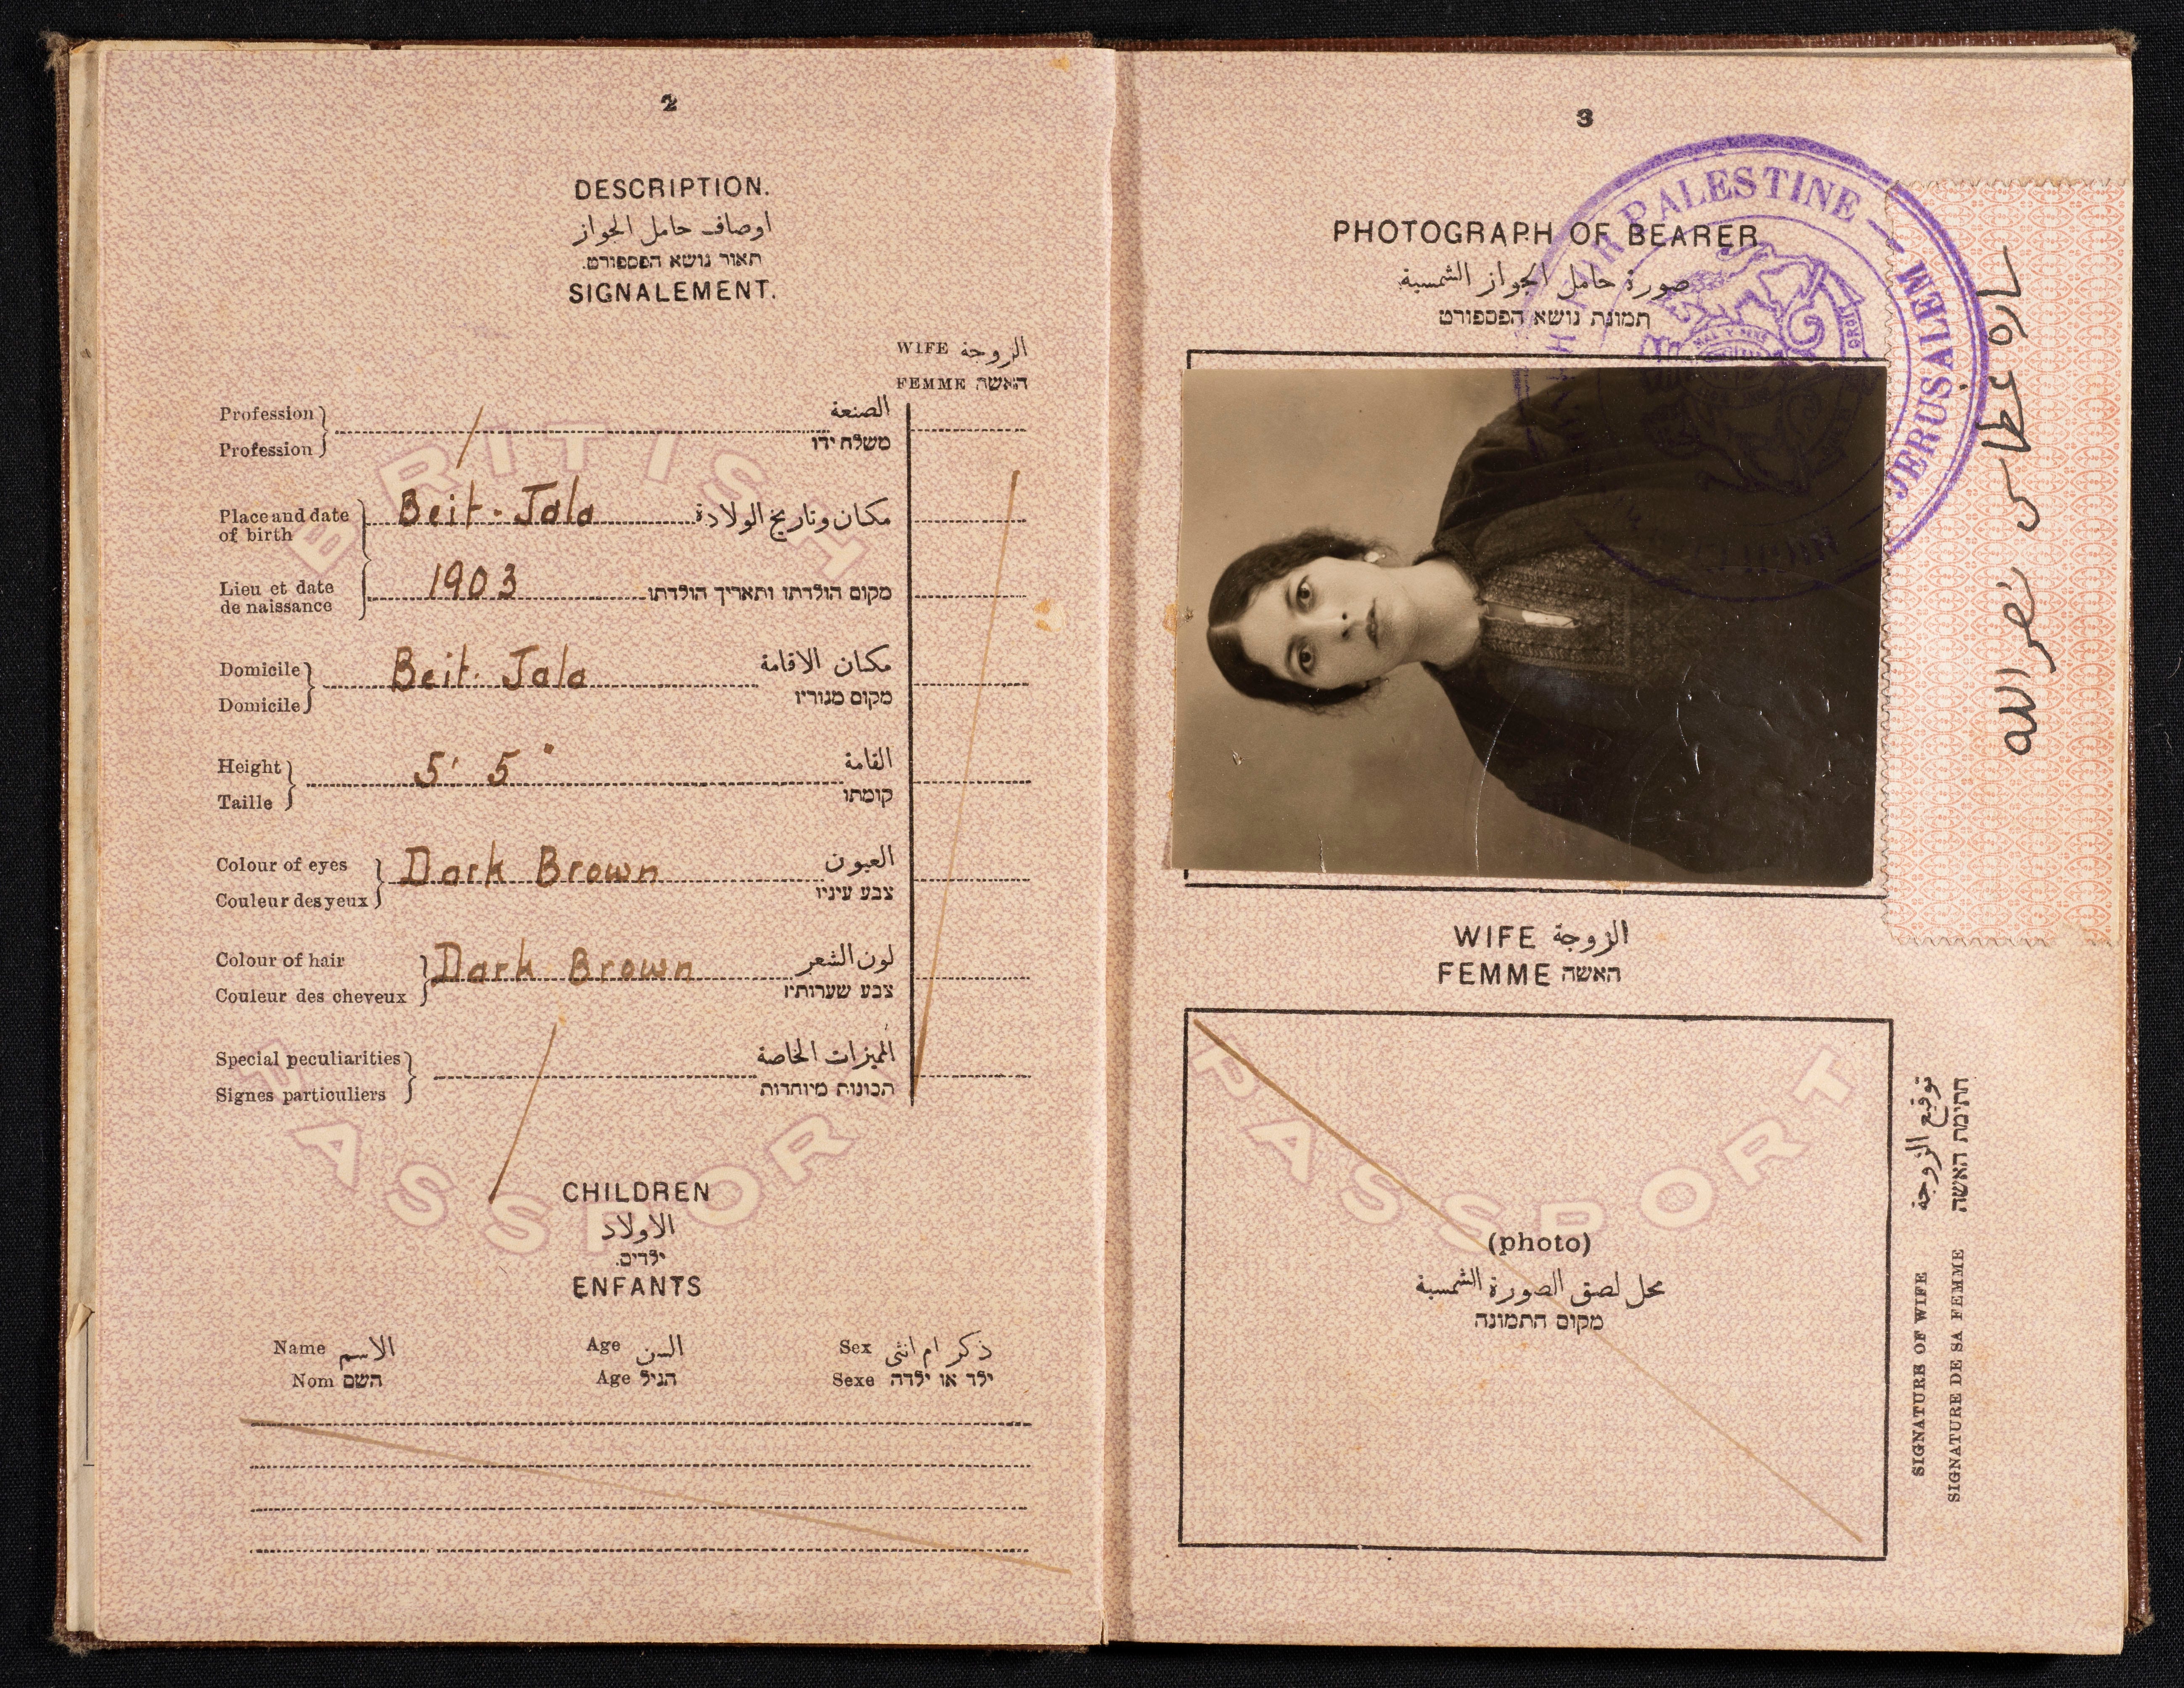 2
DESCRIPTION.
اوصاف حامل الجواز
תאור נושא הפספורט.
SIGNALEMENT.
WIFE الزوجة
FEMME האשה
Profession الصنعة
Profession משלח ידו
Place and date of birth Beit-Jala مكان وتاريخ الولادة
Lieu et date de naissance 1903 מקום הולדתו ותאריך הולדתו
Domicile Beit-Jala مكان الاقامة
Domicile מקום מגוריו
Height 5' 5" القامة
Taille קומתו
Colour of eyes Dark Brown العيون
Couleur des yeux צבע עיניו
Colour of hair Dark Brown لون الشعر
Couleur des cheveux צבע שערותיו
Special peculiarities المميزات الخاصة
Signes particuliers תכונות מיוחדות
BRITISH
PASSPORT
CHILDREN
الاولاد
ילדים.
ENFANTS
Name الاسم Age السن Sex ذكر ام انثى
Nom השם Age הגיל Sexe ילד או ילדה
3
PHOTOGRAPH OF BEARER
صورة حامل الجواز الشمسية
תמונת נושא הפספורט
FOR PALESTINE — JERUSALEM
سارة غطاس نصر الله
WIFE الزوجة
FEMME האשה
PASSPORT
(photo)
محل لصق الصورة الشمسية
מקום התמונה
SIGNATURE OF WIFE توقيع الزوجة
SIGNATURE DE SA FEMME חתימת האשה